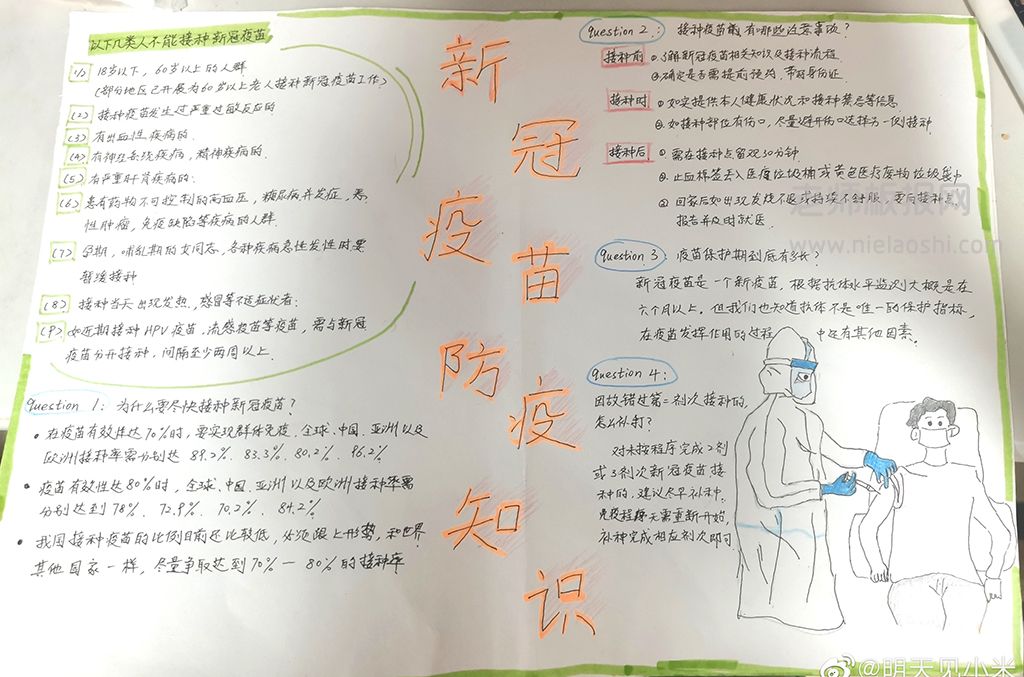 以下几类人不能接种新冠疫苗
(1) 18岁以下，60岁以上的人群
(部分地区已开展为60岁以上老人接种新冠疫苗工作)
(2) 接种疫苗发生过严重过敏反应的
(3) 有出血性疾病的
(4) 有神经系统疾病，精神疾病的.
(5) 有严重肝肾疾病的;
(6) 患有药物不可控制的高血压，糖尿病并发症，恶
性肿瘤，免疫缺陷等疾病的人群.
(7) 孕期，哺乳期的女同志、各种疾病急性发性时要
暂缓接种
(8) 接种当天出现发热，感冒等不适症状者;
(9) 如近期接种HPV疫苗、流感疫苗等疫苗，需与新冠
疫苗分开接种，间隔至少两周以上.
question 1: 为什么要尽快接种新冠疫苗?
• 在疫苗有效性达70%时，要实现群体免疫，全球、中国、亚洲以及
欧洲接种率需分别达 89.2%. 83.3%. 80.2%. 96.2%
• 疫苗有效性达80%时，全球、中国、亚洲以及欧洲接种率需
分别达到78%. 72.9%. 70.2%. 84.2%
• 我国接种疫苗的比例目前还比较低，必须跟上形势，和世界
其他国家一样，尽量争取达到70%—80%的接种率
新冠疫苗防疫知识
question 2: 接种疫苗前有哪些注意事项?
接种前 ①了解新冠疫苗相关知识及接种流程
②确定是否需提前预约，带好身份证.
接种时 ①如实提供本人健康状况和接种禁忌等信息
②如接种部位有伤口，尽量避开伤口选择另一侧接种
接种后 ①需在接种点留观30分钟
②止血棉签丢入医疗垃圾桶或黄色医疗废物垃圾袋中
②回家后如出现发烧不退或持续不舒服，要向接种点
报告并及时就医
老师板报网
www.nielaoshi.com
question 3: 疫苗保护期到底有多长?
新冠疫苗是一个新疫苗，根据抗体水平监测大概是在
六个月以上，但我们也知道抗体不是唯一的保护指标，
在疫苗发挥作用的过程中还有其他因素。
question 4:
因故错过第二剂次接种的，
怎么补打?
对未按程序完成2剂
或3剂次新冠疫苗接
种的，建议尽早补种，
免疫程序无需重新开始，
补种完成相应剂次即可
@明天见小米